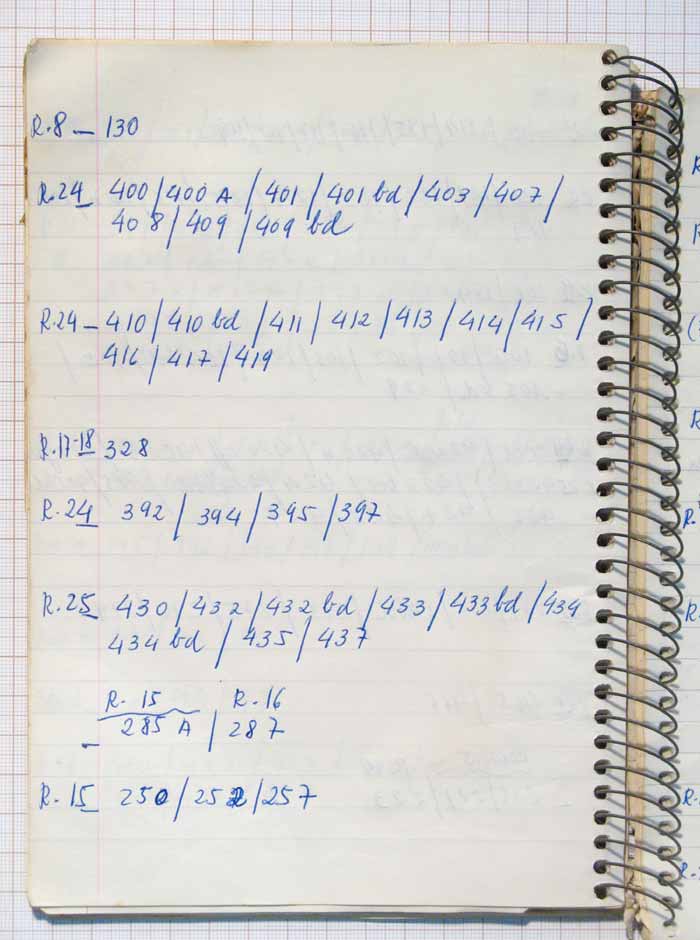 R.8 – 130
R.24 400 / 400 A / 401 / 401 bd / 403 / 407 /
408 / 409 / 409 bd
R.24 – 410 / 410 bd / 411 / 412 / 413 / 414 / 415 /
416 / 417 / 419
R.17-18 328
R.24 392 / 394 / 395 / 397
R.25 430 / 432 / 432 bd / 433 / 433 bd / 434
434 bd / 435 / 437
R. 15 R. 16
– 285 A / 287
R. 15 250 / 252 / 257